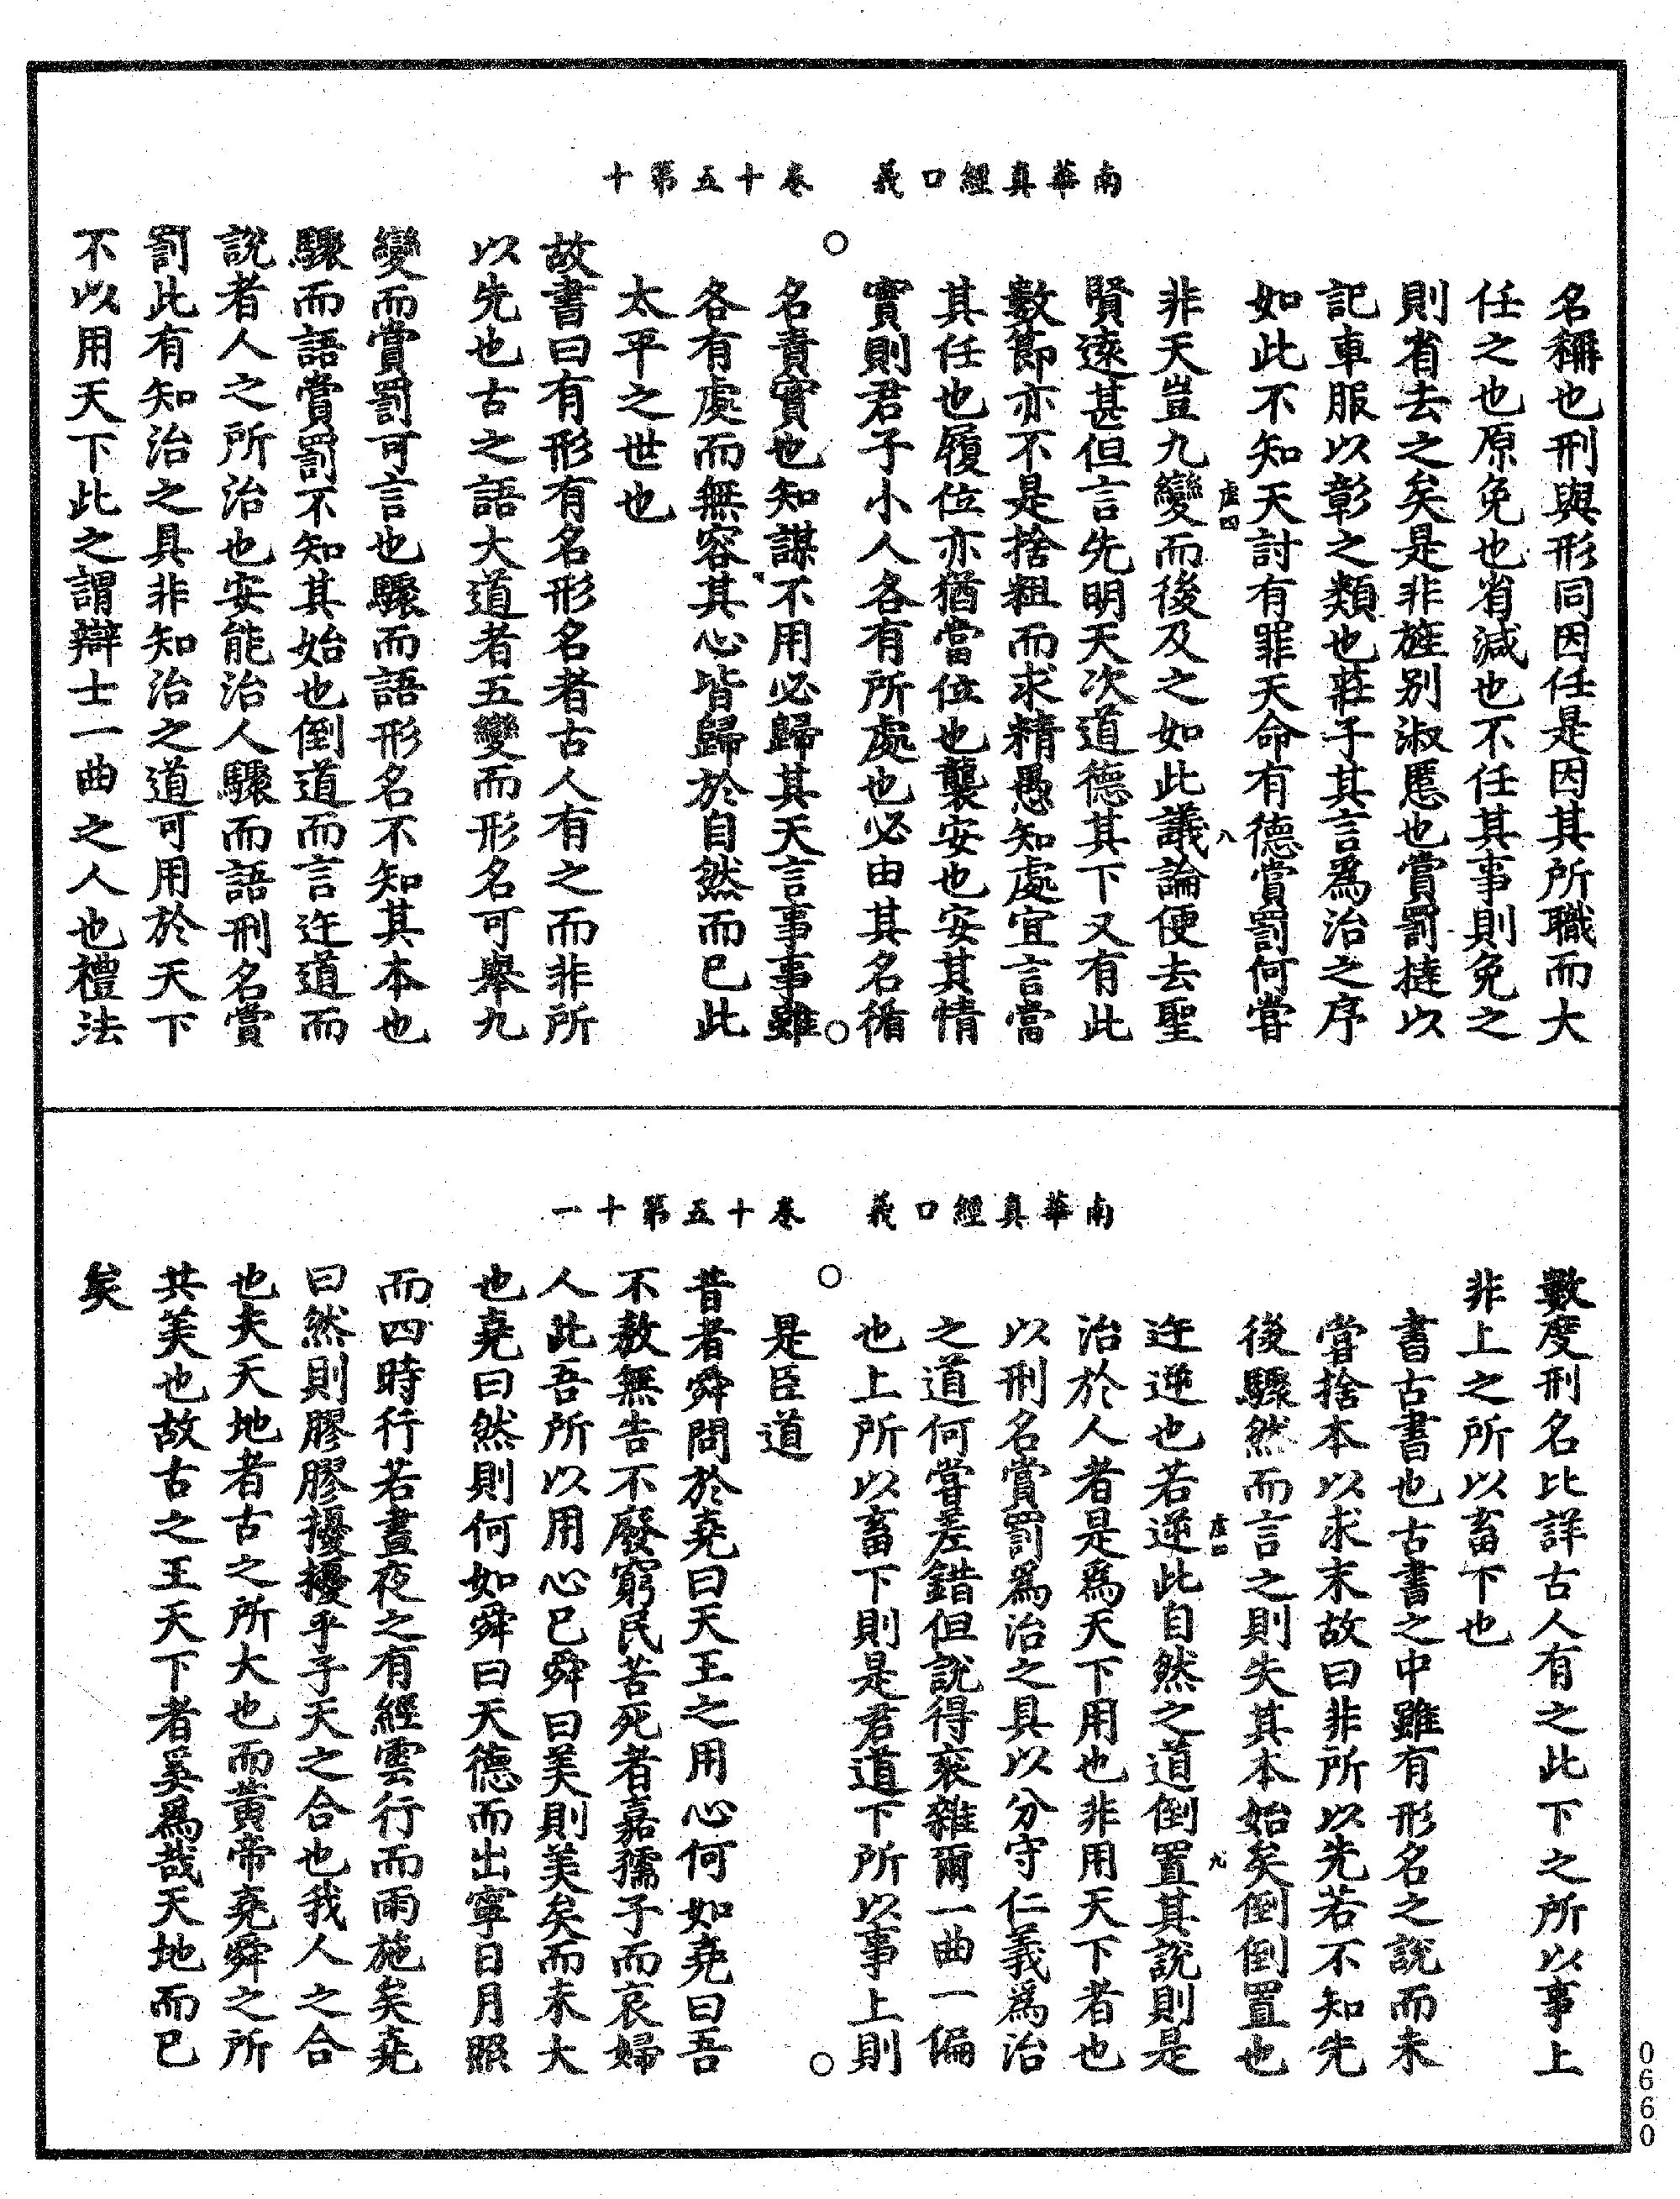 南華真經口義　卷十五第十
名稱也刑與形同因任是因其所職而大
任之也原免也省減也不任其事則免之
則省去之矣是非旌別淑慝也賞罰撻以
記車服以彰之類也莊子其言爲治之序
如此不知天討有罪天命有德賞罰何嘗
虛四　八
非天豈九變而後及之如此議論便去聖
賢遠甚但言先明天次道德其下又有此
數節亦不是捨粗而求精愚知處宜言當
其任也履位亦猶當位也襲安也安其情
實則君子小人各有所處也必由其名循
名責實也知謀不用必歸其天言事事雖
各有處而無容其心皆歸於自然而已此
太平之世也
故書曰有形有名形名者古人有之而非所
以先也古之語大道者五變而形名可舉九
變而賞罰可言也驟而語形名不知其本也
驟而語賞罰不知其始也倒道而言迕道而
說者人之所治也安能治人驟而語刑名賞
罰此有知治之具非知治之道可用於天下
不以用天下此之謂辯士一曲之人也禮法
南華真經口義　卷十五第十一
數度刑名比詳古人有之此下之所以事上
非上之所以畜下也
書古書也古書之中雖有形名之說而未
嘗捨本以求末故曰非所以先若不知先
後驟然而言之則失其本始矣倒倒置也
虛四　九
迕逆也若逆此自然之道倒置其說則是
治於人者是爲天下用也非用天下者也
以刑名賞罰爲治之具以分守仁義爲治
之道何嘗差錯但說得衮雜爾一曲一偏
也上所以畜下則是君道下所以事上則
是臣道
昔者舜問於堯曰天王之用心何如堯曰吾
不敖無告不廢窮民苦死者嘉孺子而哀婦
人此吾所以用心已舜曰美則美矣而未大
也堯曰然則何如舜曰天德而出寧日月照
而四時行若晝夜之有經雲行而雨施矣堯
曰然則膠膠擾擾乎子天之合也我人之合
也夫天地者古之所大也而黃帝堯舜之所
共美也故古之王天下者奚爲哉天地而已
矣
0660